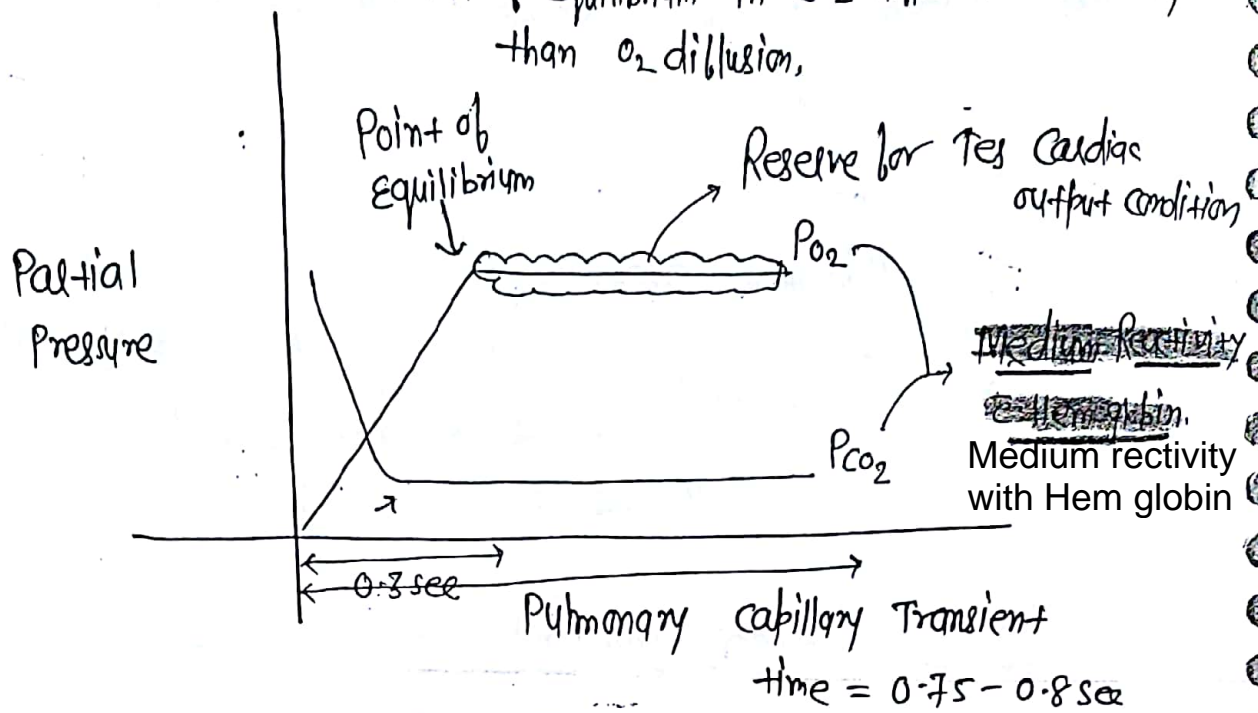 than O₂ dillusion,
Point of
Equilibrium
Reserve for ↑es Cardiac
output condition
Partial
Pressure
PO₂
Medium Reactivity
c̄ Hemoglobin.
PCO₂
Medium rectivity
with Hem globin
0.3 sec
Pulmonary capillary Transient
time = 0.75 - 0.8 sec